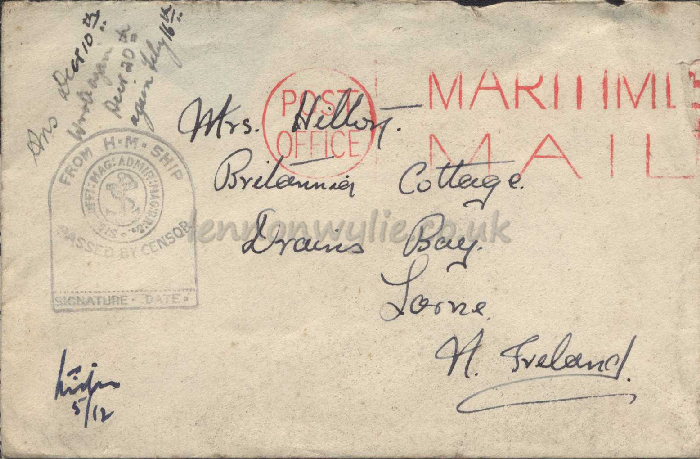 Ans Decr 10th
Wrote again
Decr 20th
again July 16th
POST
OFFICE
MARITIME
MAIL
FROM H·M·SHIP
PASSED BY CENSOR
SIGNATURE · DATE
Mrs. Hilton.
Britannia Cottage.
Drains Bay.
Lorne.
N. Ireland.
5/12
lennonwylie.co.uk